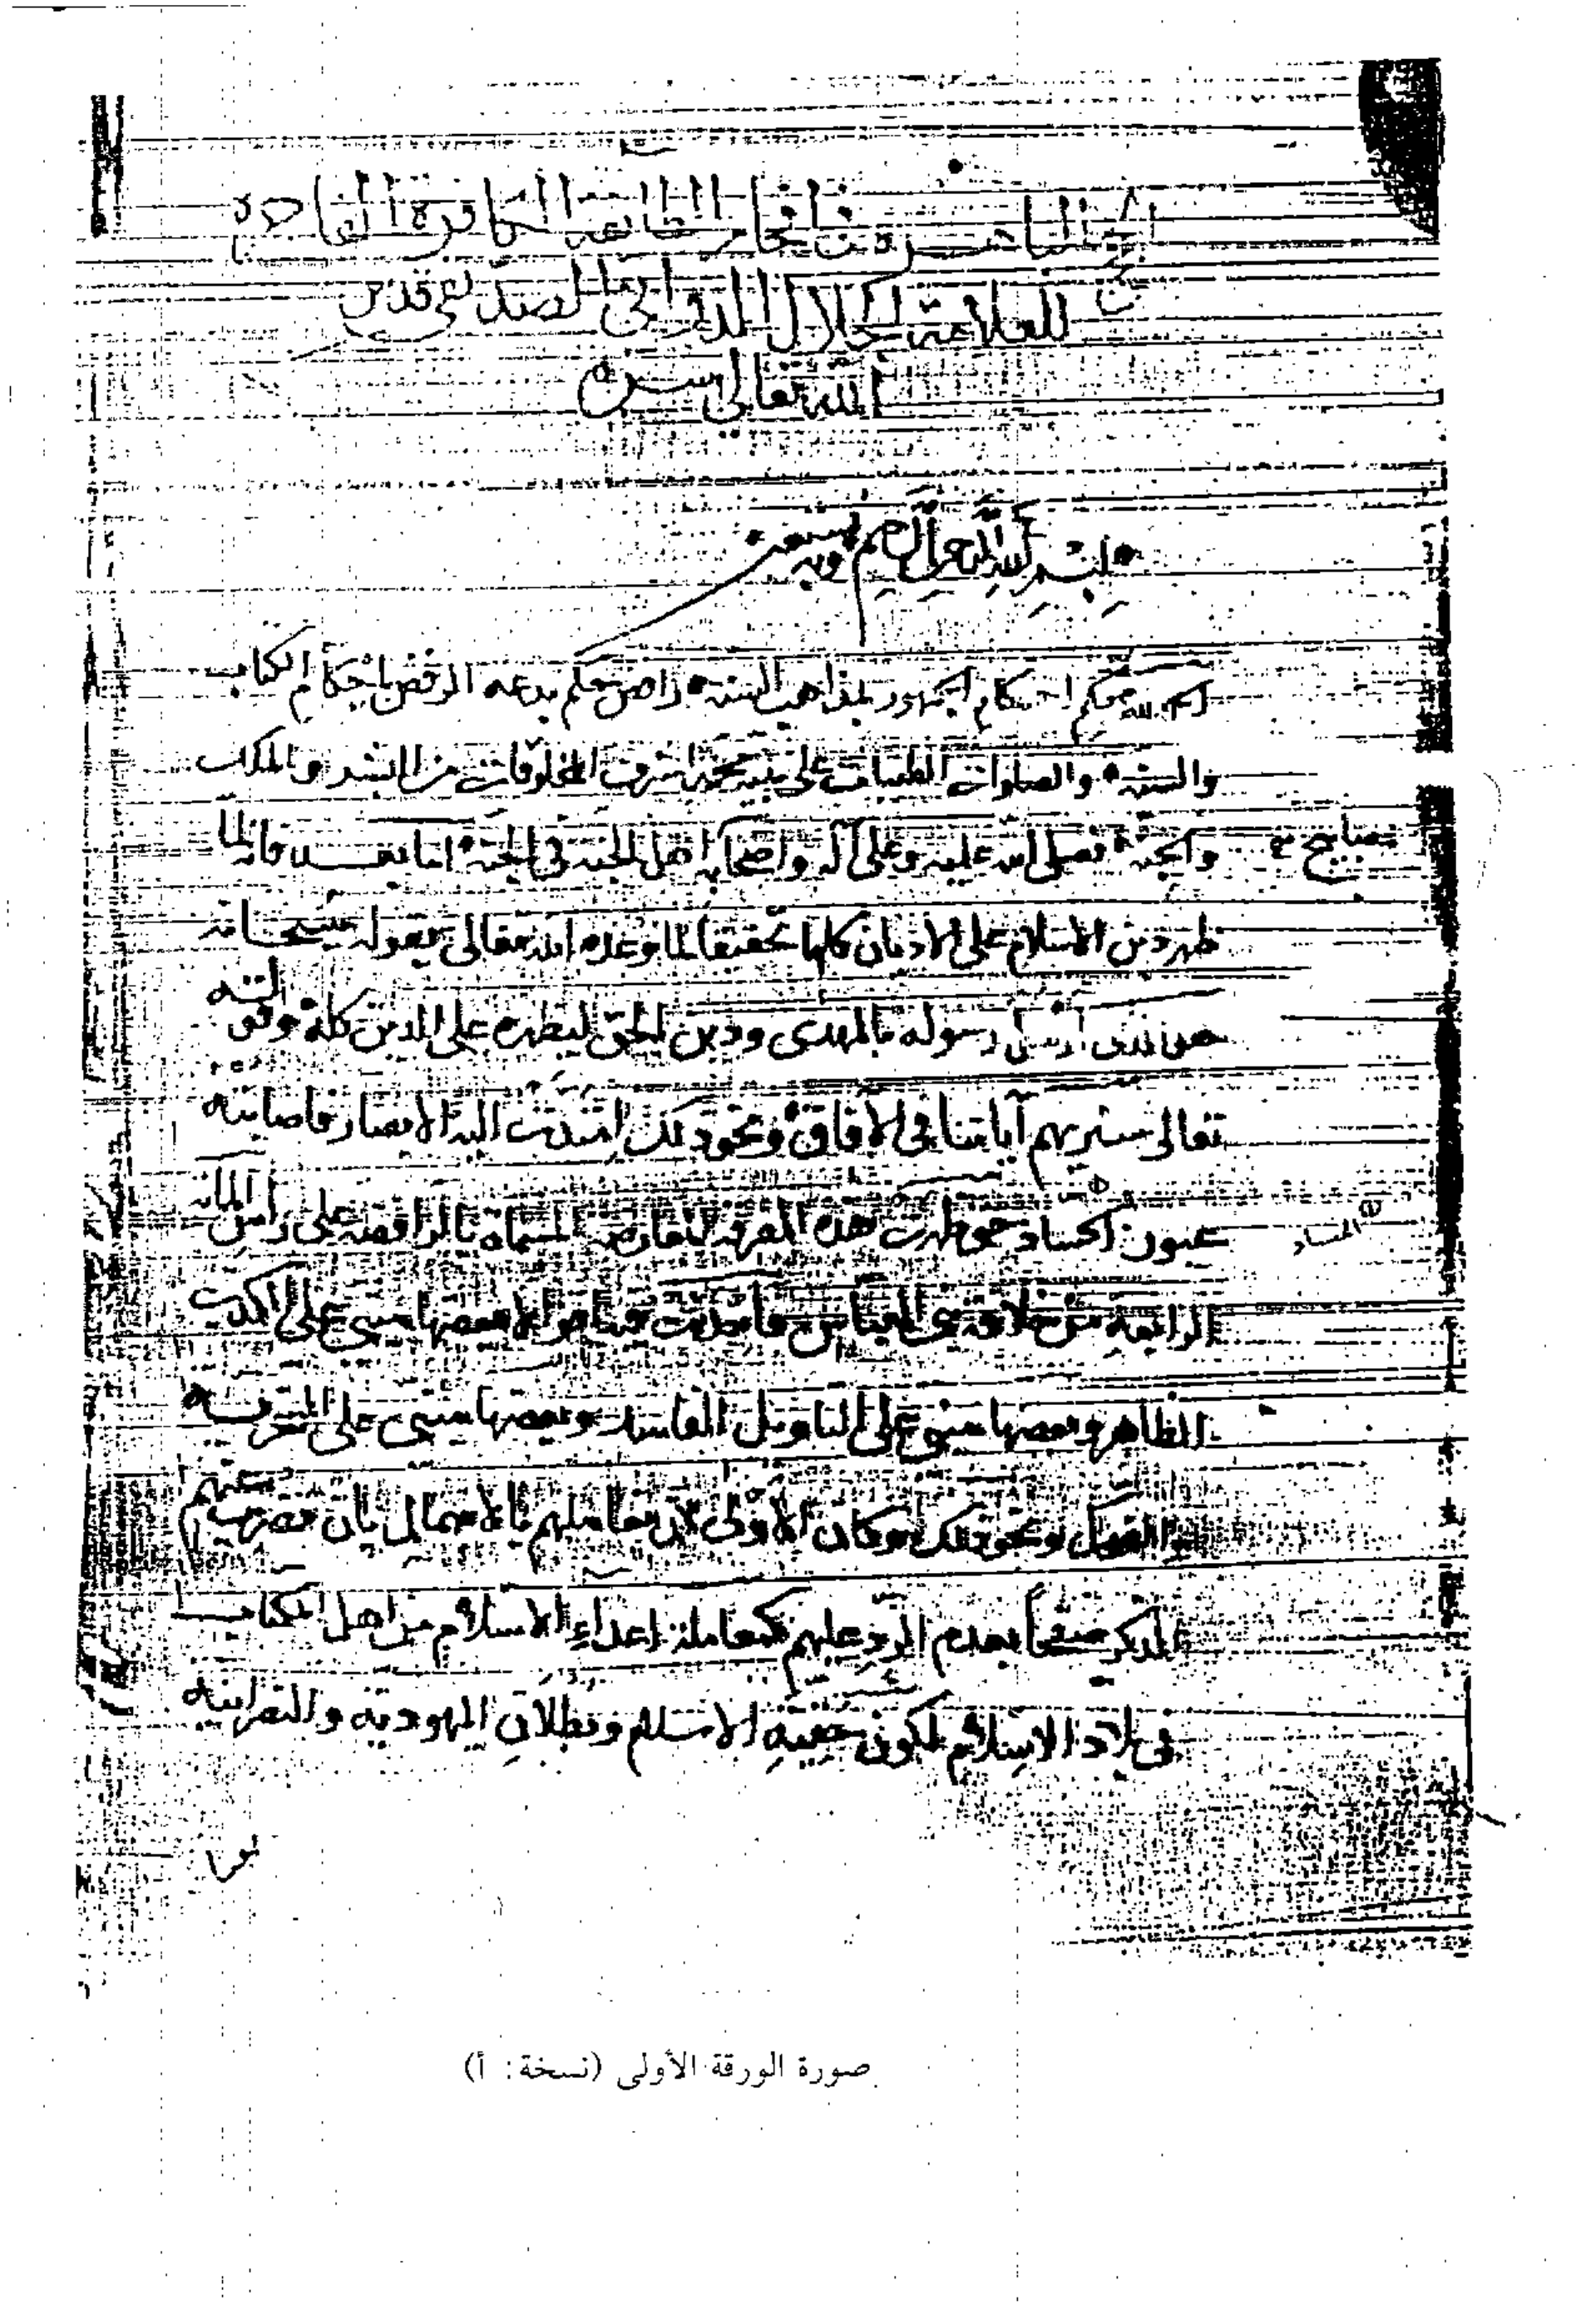 الحجج الباهرة في إفحام الطائفة الكافرة الفاجرة
للعلامة الجلال الدواني الصديقي قدس
الله تعالى سره
بسم الله الرحمن الرحيم وبه نستعين
احكام الجمهور بمذاهب السنة بدعه الرفض باحكام الكتاب
والسنه والصلوات الطيبات على نبيه محمد اشرف المخلوقات من البشر والملك
والجنة فصلى الله عليه وعلى آله واصحابه اهل في الجنة اما بعد فانه لما
ظهر دين الاسلام على الاديان كلها تحقيقا لما وعده الله تعالى بقوله سبحانه
هو الذي ارسل رسوله بالهدى ودين الحق ليظهره على الدين كله وقوله
تعالى سنريهم آياتنا في الآفاق ونحو ذلك امتدت اليه الابصار فاصابته
عيون الحساد حتى ظهرت هذه الفرقة المسماة بالرافضه على راس المائه
الرابعه من خلافة بني العباس بعضها مبني على الكذب
الظاهر وبعضها مبني على التاويل الفاسد وبعضها مبني على
ونحو ذلك وكان الأولى لان نعاملهم بالاهمال بان نضرب عنهم
الذكر صفحاً بعدم الرد عليهم كمعاملة اعداء الاسلام من اهل الكتاب
في بلاد الاسلام لكون حقية الاسلام وبطلان اليهوديه والنصرانيه
صورة الورقة الأولى (نسخة: أ)